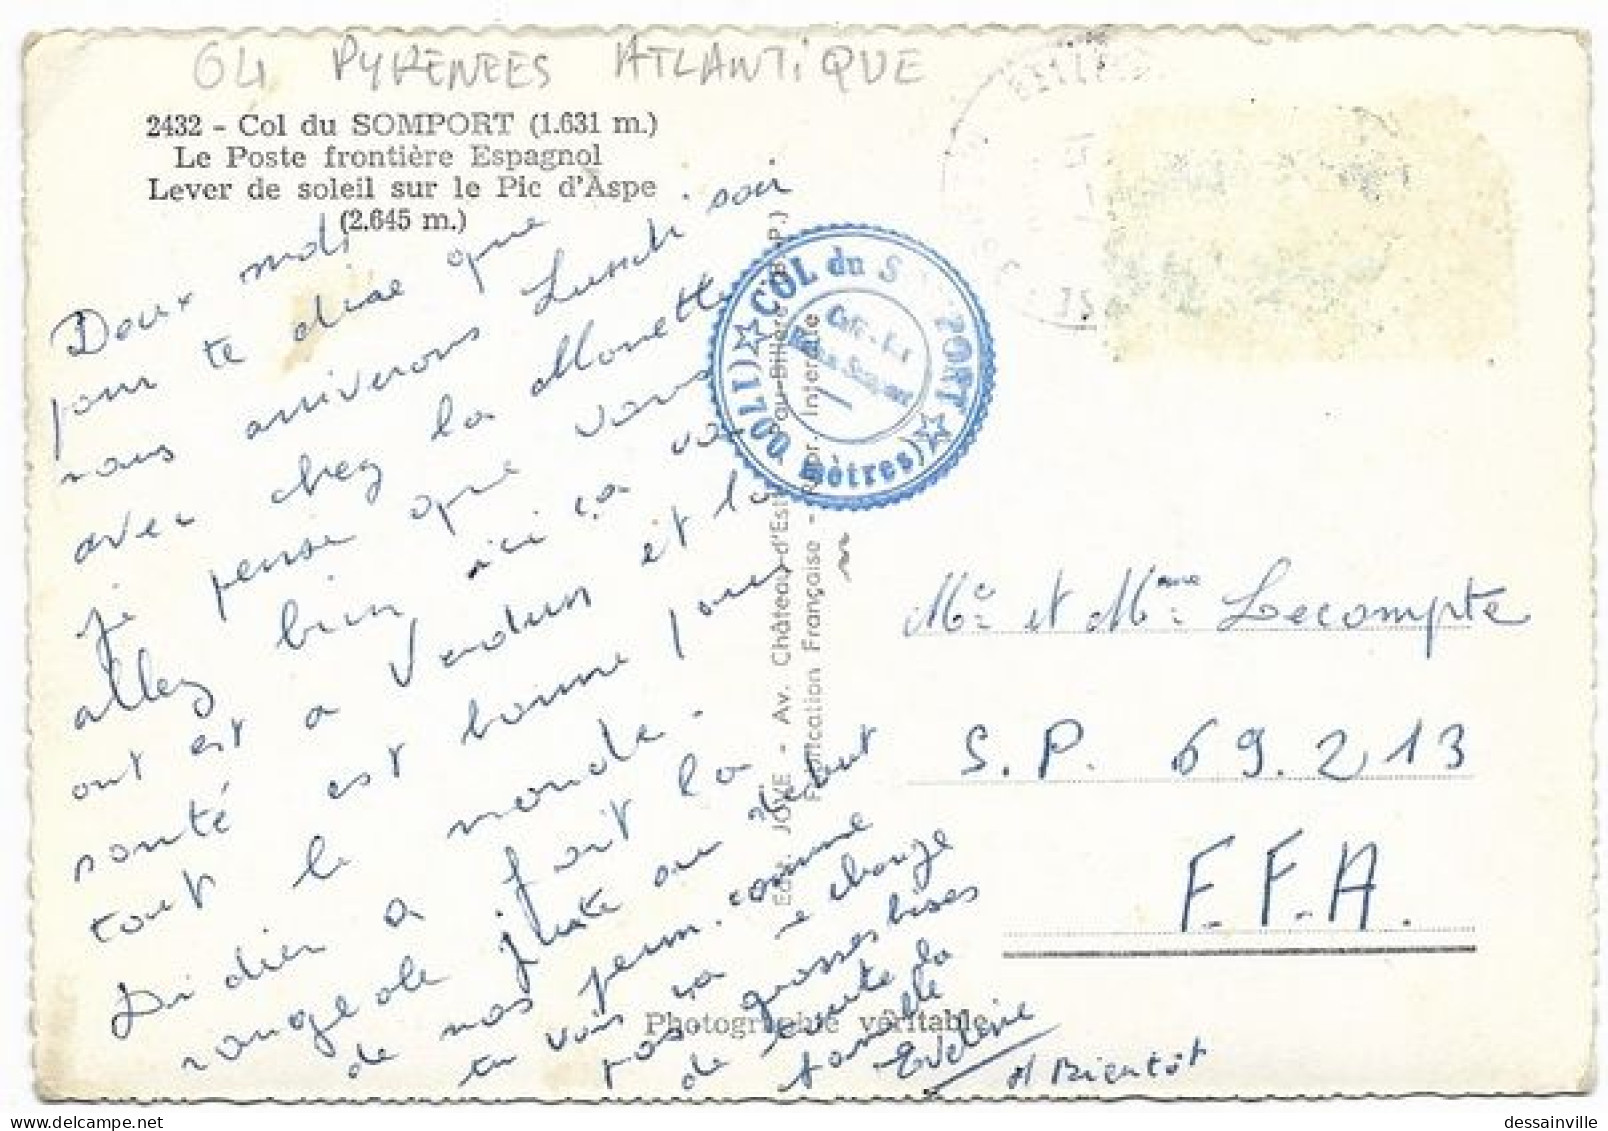 64 PYRENEES ATLANTIQUE
2432 - Col du SOMPORT (1.631 m.)
Le Poste frontière Espagnol
Lever de soleil sur le Pic d'Aspe
(2.645 m.)
Deux mots
pour te dire que
nous arriverons Lundi soir
avec chez la Monette
je pense que vous
allez bien ici ça va
ont est a Verdun et la
santé est bonne pour
tout le monde.
Didier a fait la
rougeole juste au debut
de nos perm. comme
tu vois ça ne change
pas grosses bises
de toute la
famille
Eveline
A Bientôt
COL du SOMPORT
(1700 mètres)
JOVE - Av. Château-d'Est
Fabrication Française - Interdite
Mr et Mme Lecompte
S.P. 69.213
F.F.A.
Photographie véritable
dessainville